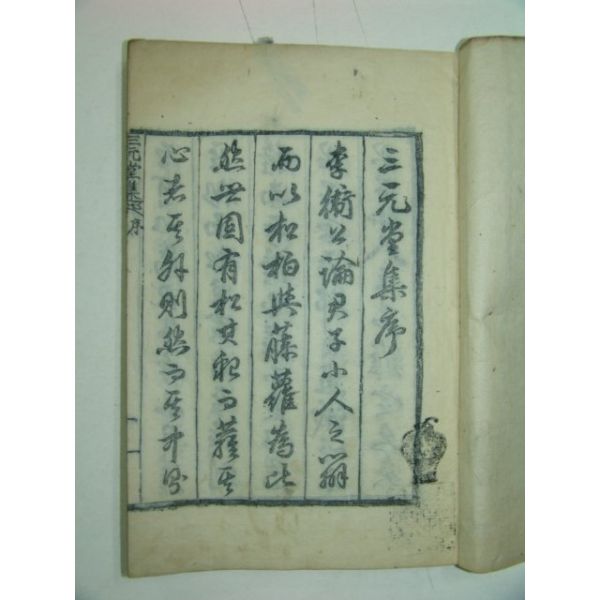 三元堂集序
李衛公論君子小人之辨
而以松柏與藤蘿為比
然世固有松其貌而蘿其
心者其外則然而其中則
三元堂集 序